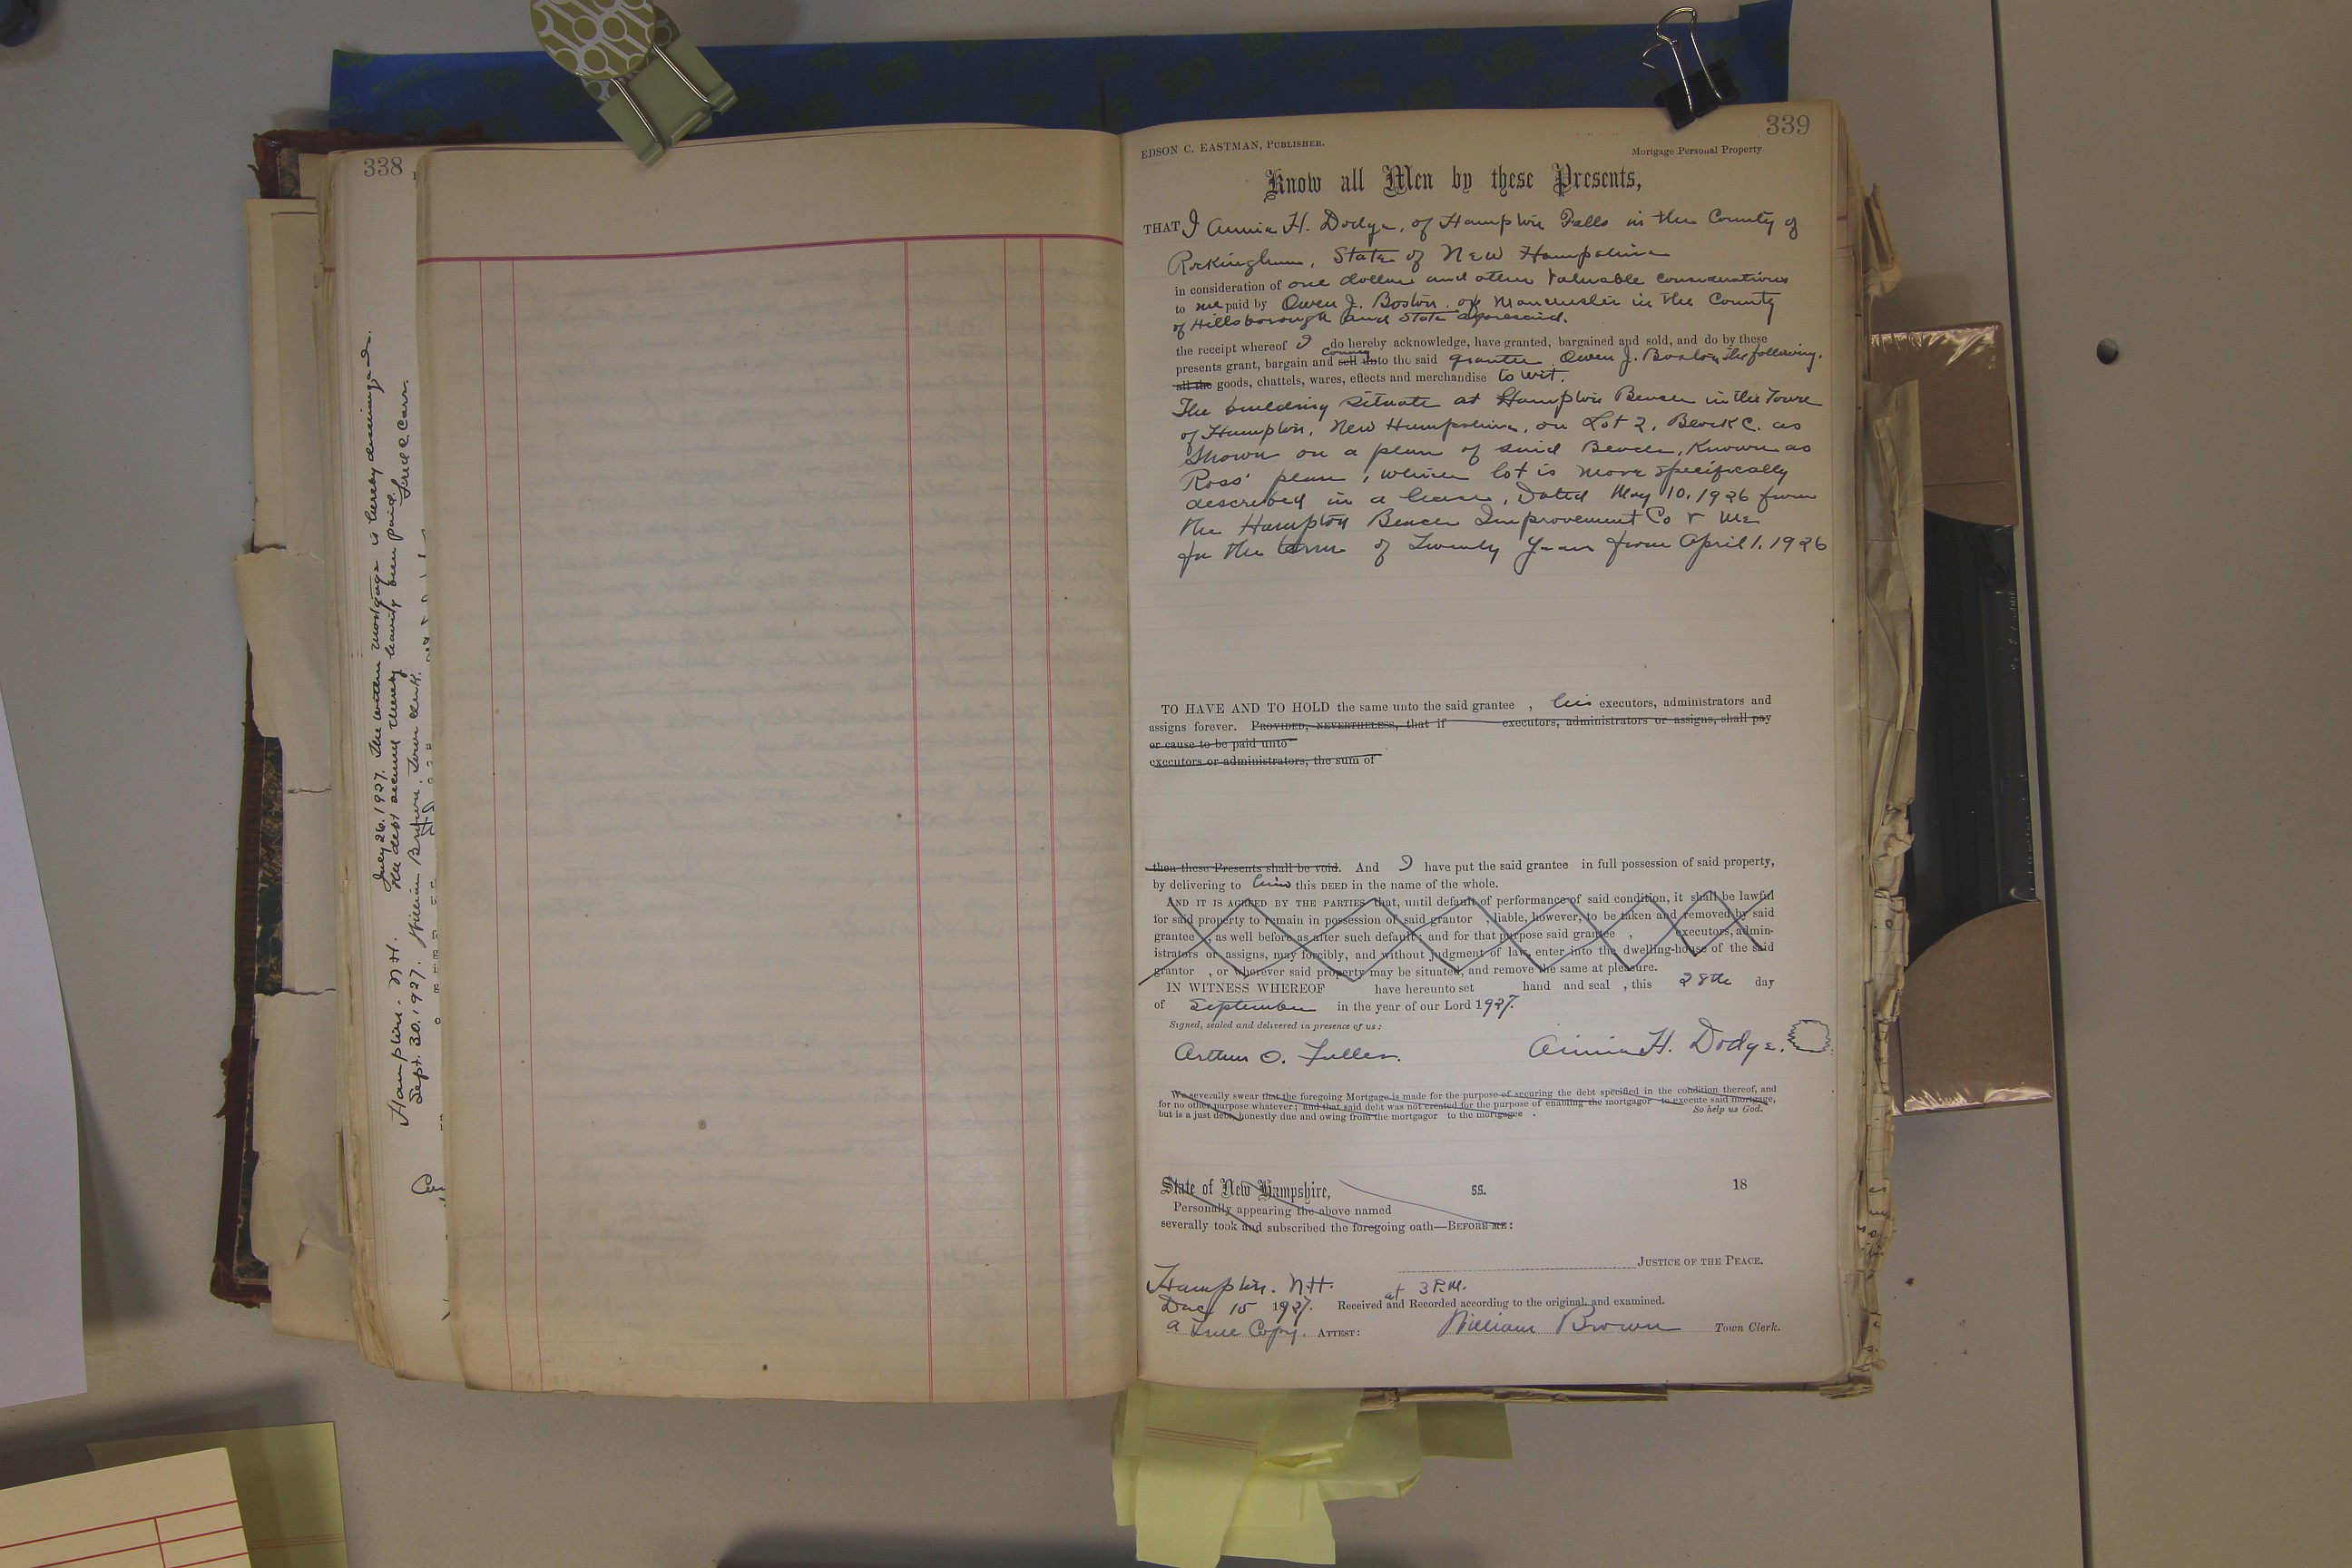 338
July 26. 1927. The within mortgage is hereby discharged.
the debt secured thereby having been paid.
Fred E Carr.
Hampton. N.H.
Sept. 30. 1927. William Brown. Town Clerk.
339
EDSON C. EASTMAN, PUBLISHER.
Mortgage Personal Property
Know all Men by these Presents,
THAT I Annie H. Dodge, of Hampton Falls in the County of
Rockingham, State of New Hampshire
in consideration of one dollar and other valuable considerations
to me paid by Owen J. Boston. of Manchester in the County
of Hillsborough and State aforesaid.
the receipt whereof I do hereby acknowledge, have granted, bargained and sold, and do by these
convey
presents grant, bargain and sell unto the said grantee Owen J. Boston, the following.
all the goods, chattels, wares, effects and merchandise to wit.
The building situate at Hampton Beach in the Town
of Hampton, New Hampshire, on Lot 2. Block C. as
shown on a plan of said Beach, Known as
Ross' plan, which lot is more specifically
described in a lease, Dated May 10. 1926 from
the Hampton Beach Improvement Co to me
for the term of Twenty Years from April 1. 1926
TO HAVE AND TO HOLD the same unto the said grantee , his executors, administrators and
assigns forever. PROVIDED, NEVERTHELESS, that if executors, administrators or assigns, shall pay
or cause to be paid unto
executors or administrators, the sum of
then these Presents shall be void. And I have put the said grantee in full possession of said property,
by delivering to him this DEED in the name of the whole.
AND IT IS AGREED BY THE PARTIES that, until default of performance of said condition, it shall be lawful
for said property to remain in possession of said grantor , liable, however, to be taken and removed by said
grantee , as well before as after such default; and for that purpose said grantee , executors, admin-
istrators or assigns, may forcibly, and without judgment of law, enter into the dwelling-house of the said
grantor , or wherever said property may be situated, and remove the same at pleasure.
IN WITNESS WHEREOF have hereunto set hand and seal , this 28th day
of September in the year of our Lord 1927.
Signed, sealed and delivered in presence of us:
Arthur O. Fuller. Annie H. Dodge.
We severally swear that the foregoing Mortgage is made for the purpose of securing the debt specified in the condition thereof, and
for no other purpose whatever; and that said debt was not created for the purpose of enabling the mortgagor to execute said mortgage,
but is a just debt, honestly due and owing from the mortgagor to the mortgagee . So help us God.
State of New Hampshire, ss. 18
Personally appearing the above named
severally took and subscribed the foregoing oath—BEFORE ME:
JUSTICE OF THE PEACE.
Hampton. N.H. at 3 P.M.
Dec 15 1927. Received and Recorded according to the original, and examined.
a True Copy. ATTEST: William Brown Town Clerk.